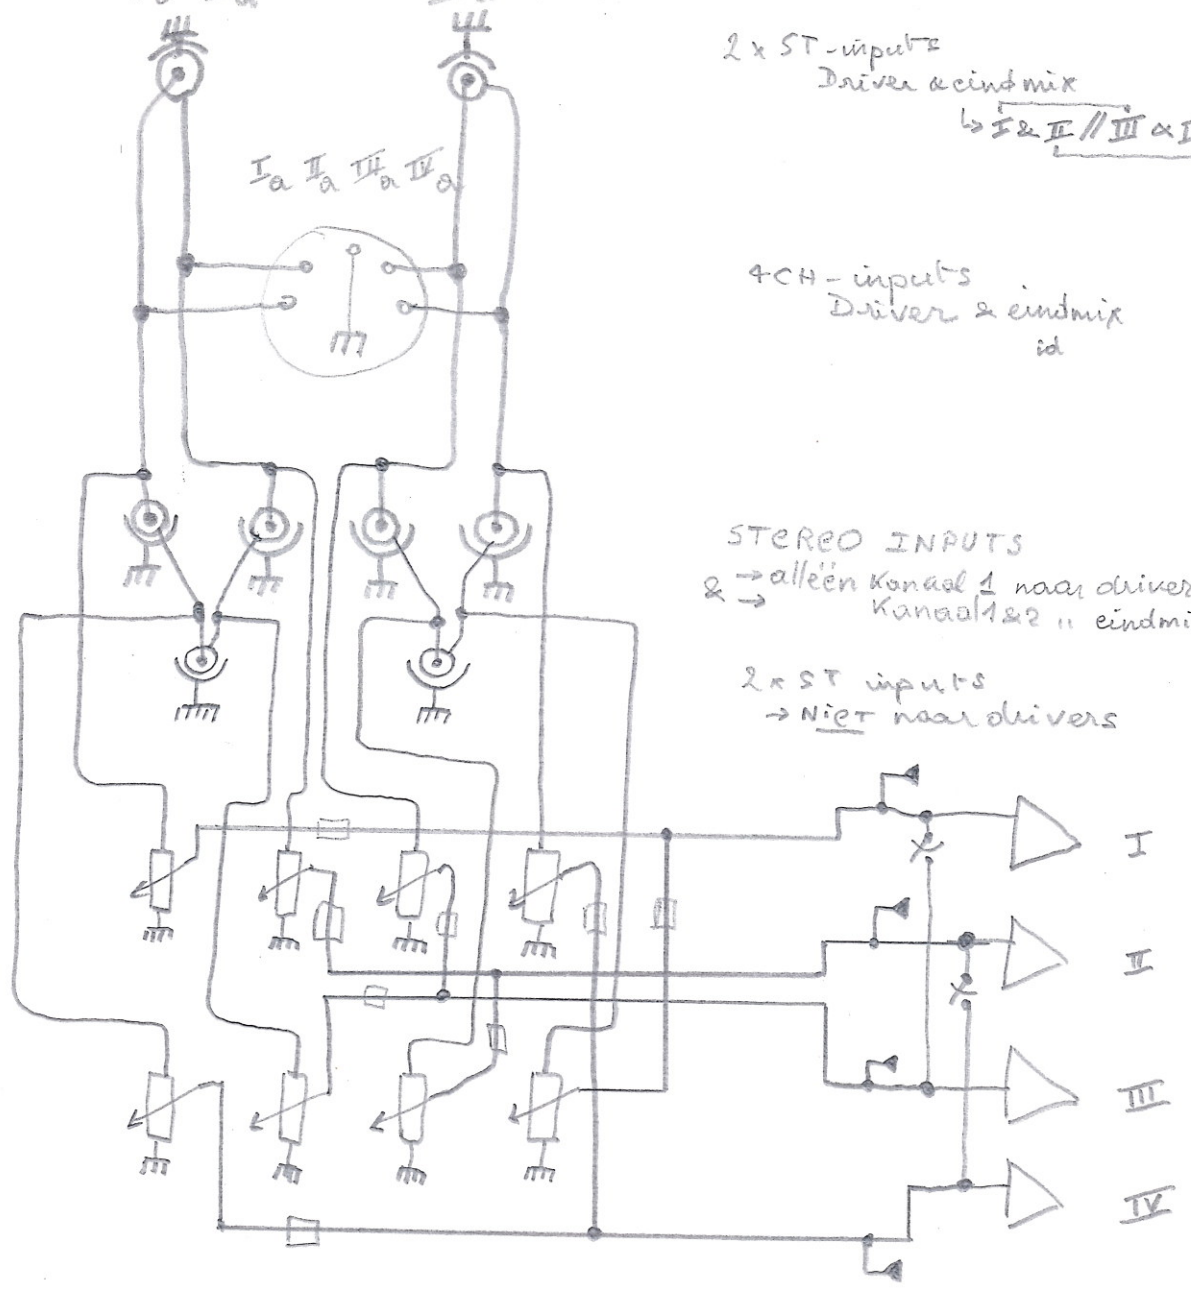 2 x ST-inputs
Driver & eindmix
↳ I & II // III &
Ia IIa IIIa IVa
4CH-inputs
Driver & eindmix
id
STEREO INPUTS
& → alléén Kanaal 1 naar driver
→ Kanaal 1 & 2 " eindmi
2 x ST inputs
→ NIET naar drivers
I
II
III
IV